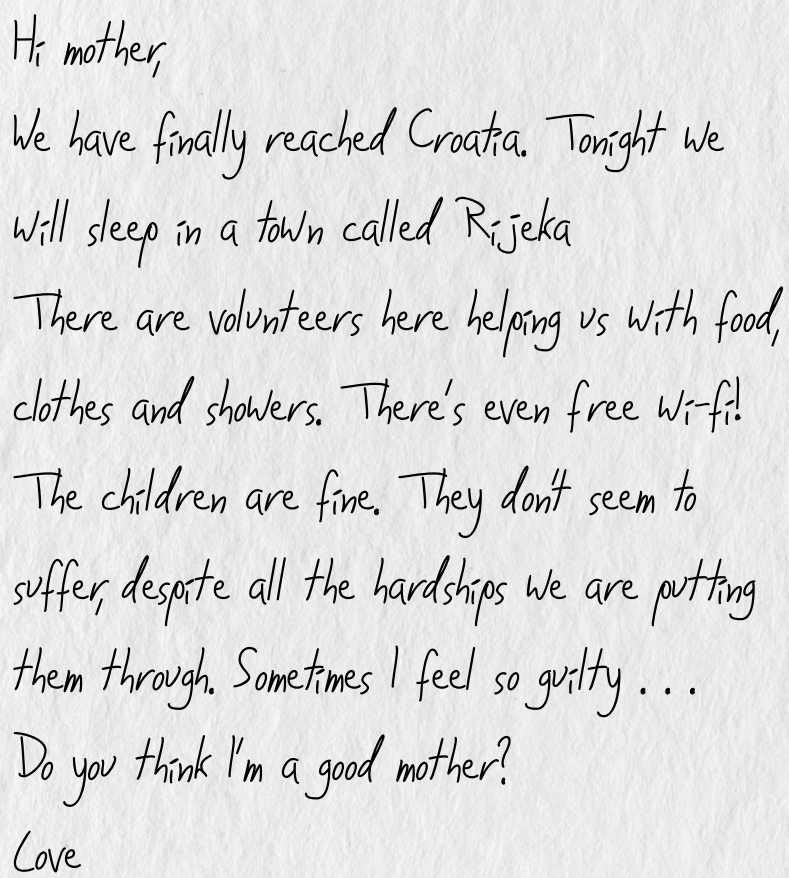 Hi mother,
We have finally reached Croatia. Tonight we
will sleep in a town called Rijeka
There are volunteers here helping us with food,
clothes and showers. There's even free wi-fi!
The children are fine. They don't seem to
suffer, despite all the hardships we are putting
them through. Sometimes I feel so guilty . . .
Do you think I'm a good mother?
Love